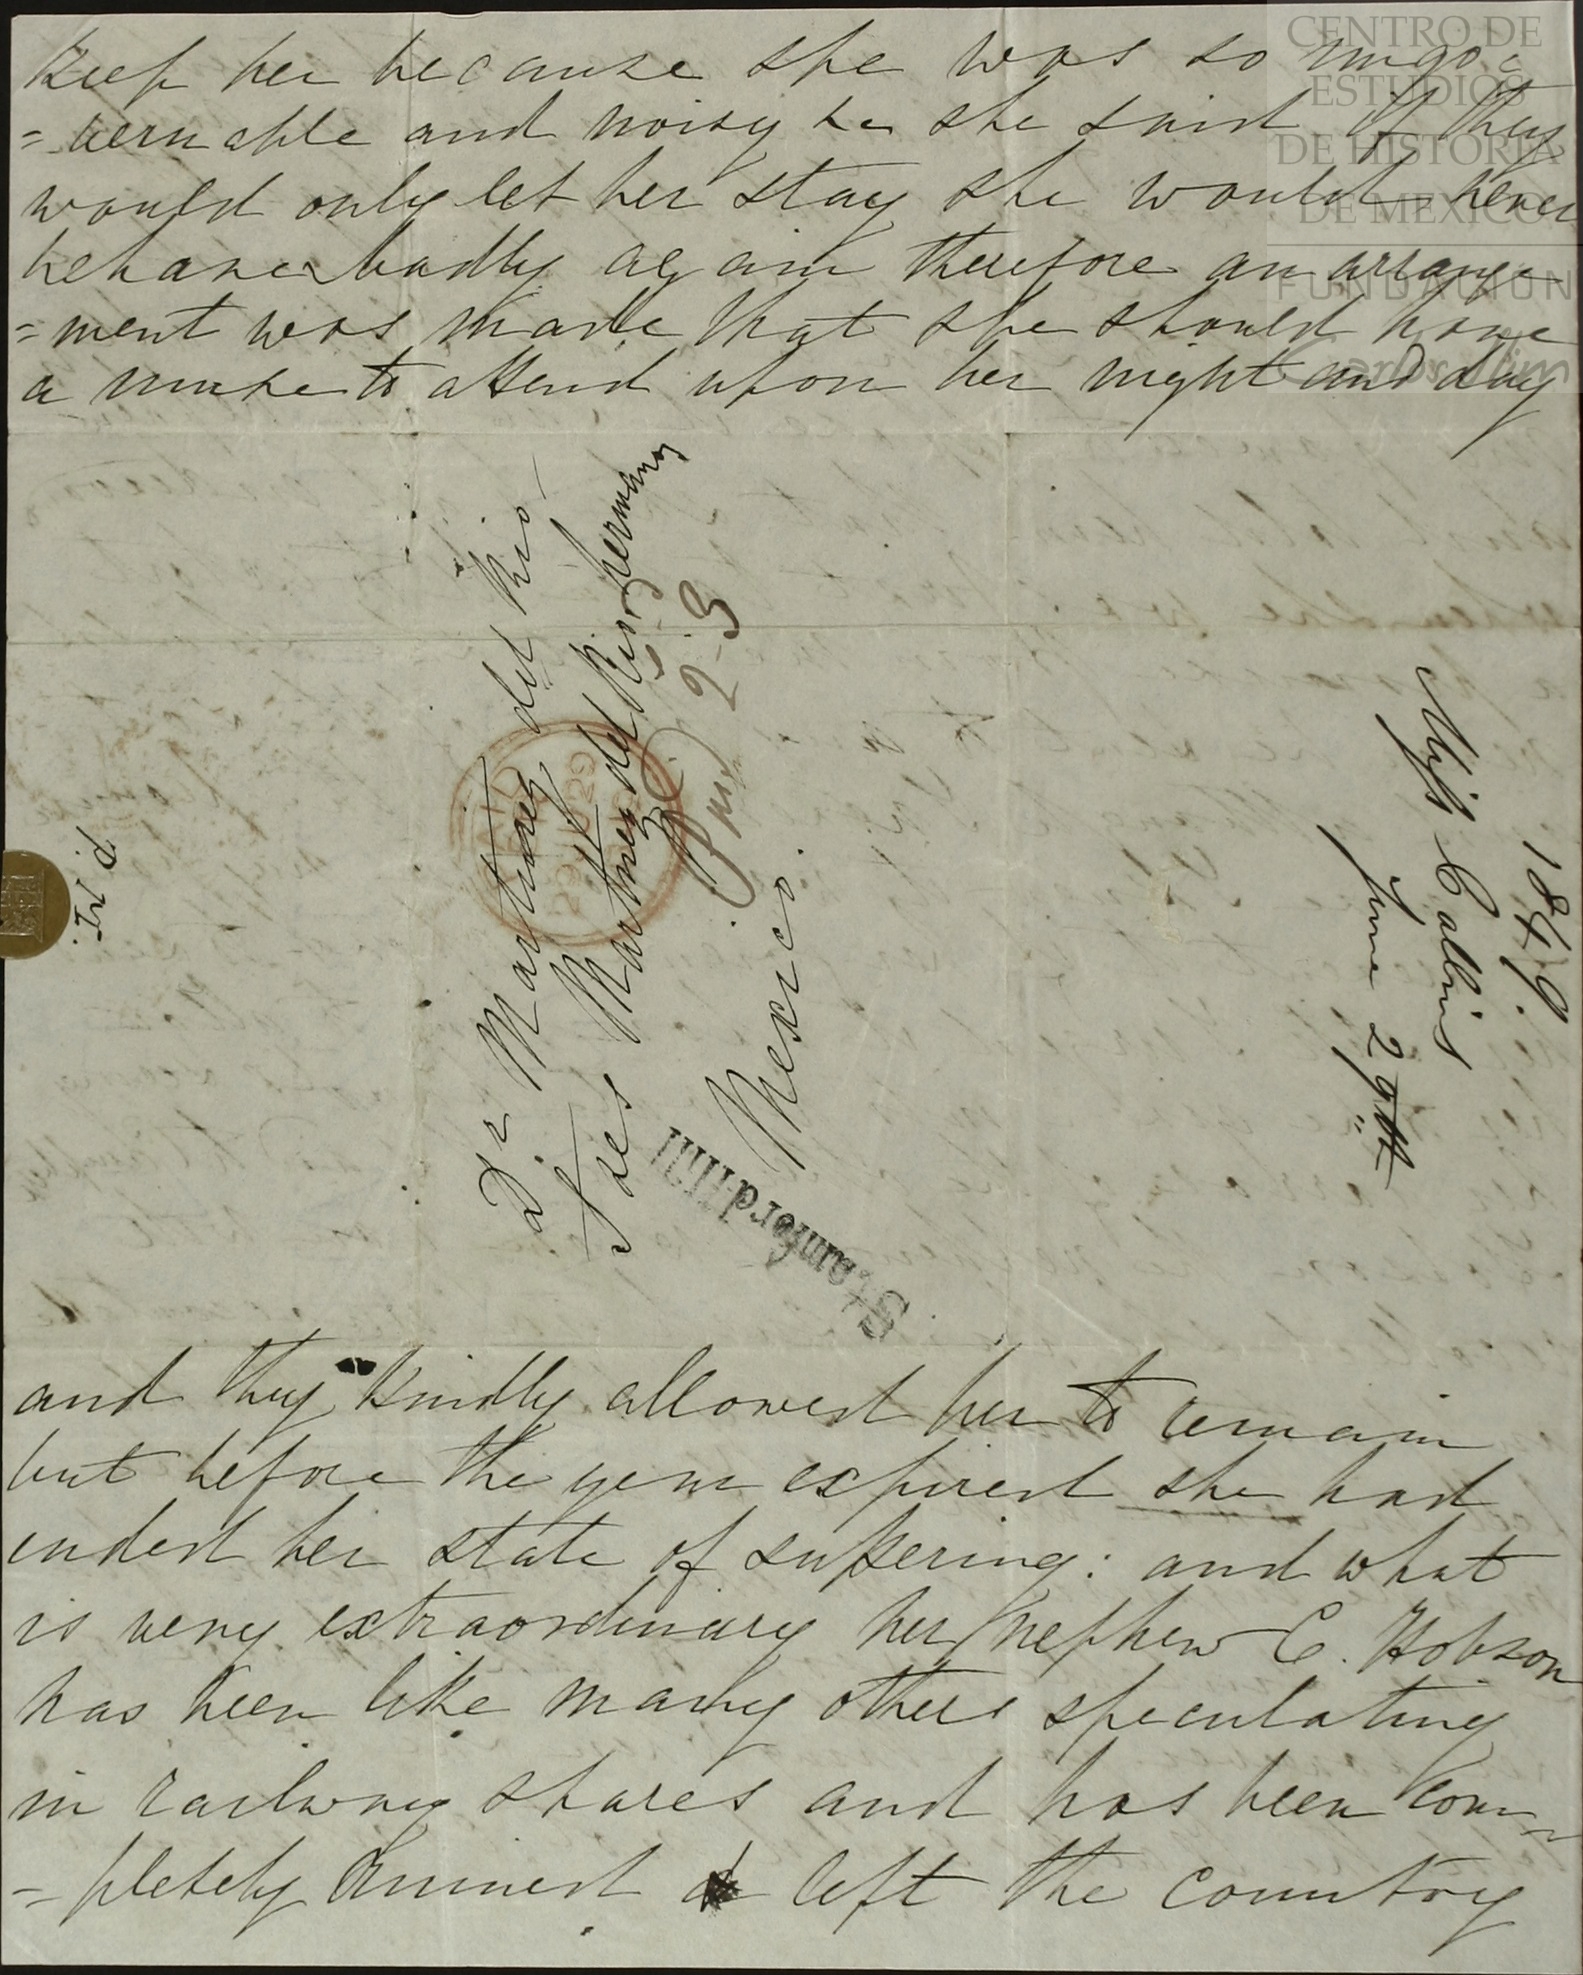 keep her because she was so ungo=
=vernable and noisy &c she said if they
would only let her stay she would never
behave badly again therefore an arrange
=ment was made that she should have
a nurse to attend upon her night and day
Dr Martinez del Rio
Sres Martinez del Rio hermanos
2-3
Mexico
PAID
29 JU 29
Stamford Hill
P. Pd
1849.
Miss Collins
June 29th
and they kindly allowed her to remain
but before the year expired she had
ended her state of suffering: and what
is very extraordinary her nephew C. Hobson
has been like many others speculating
in railway shares and has been com=
=pletely ruined & left the country
CENTRO DE
ESTUDIOS
DE HISTORIA
DE MEXICO
FUNDACIÓN
Carlos Slim